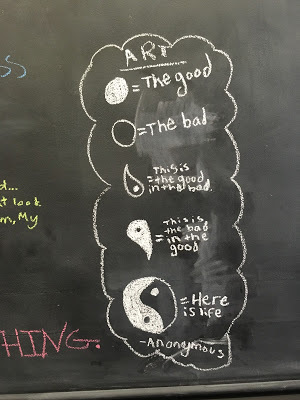 ART
= The good
= The bad
This is
= the good
in the bad.
This is
= the bad
in the
good
= Here
is life
-Anonymous
SS
d...
t look
m, My
HING.